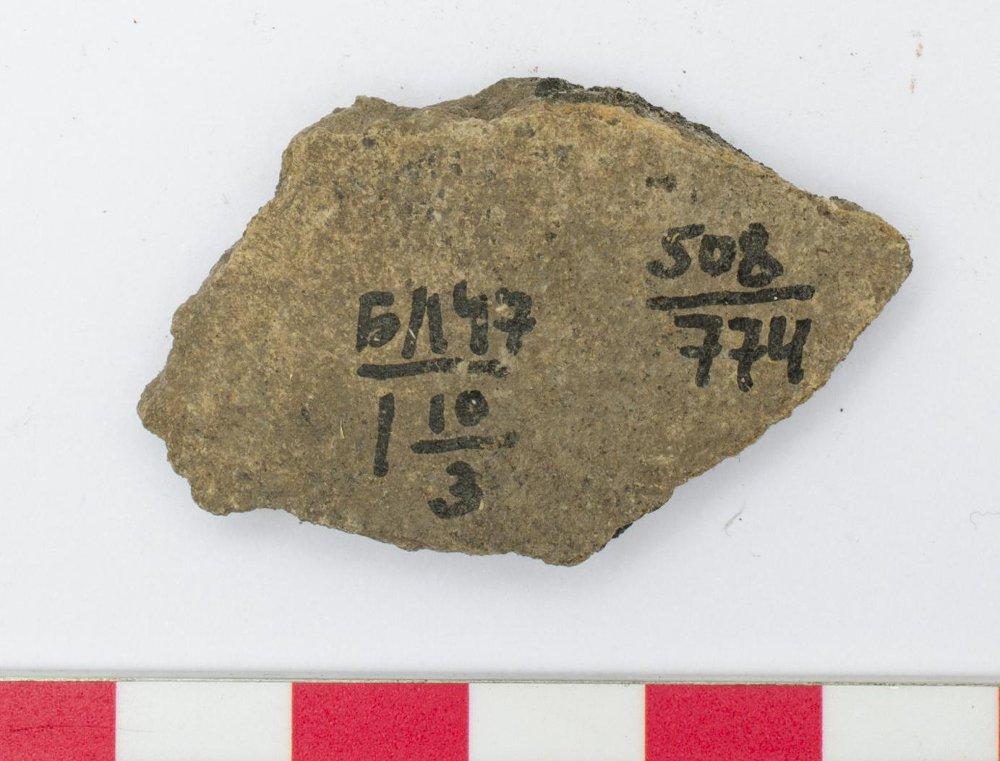 БЛ47
1 10
3
508
774